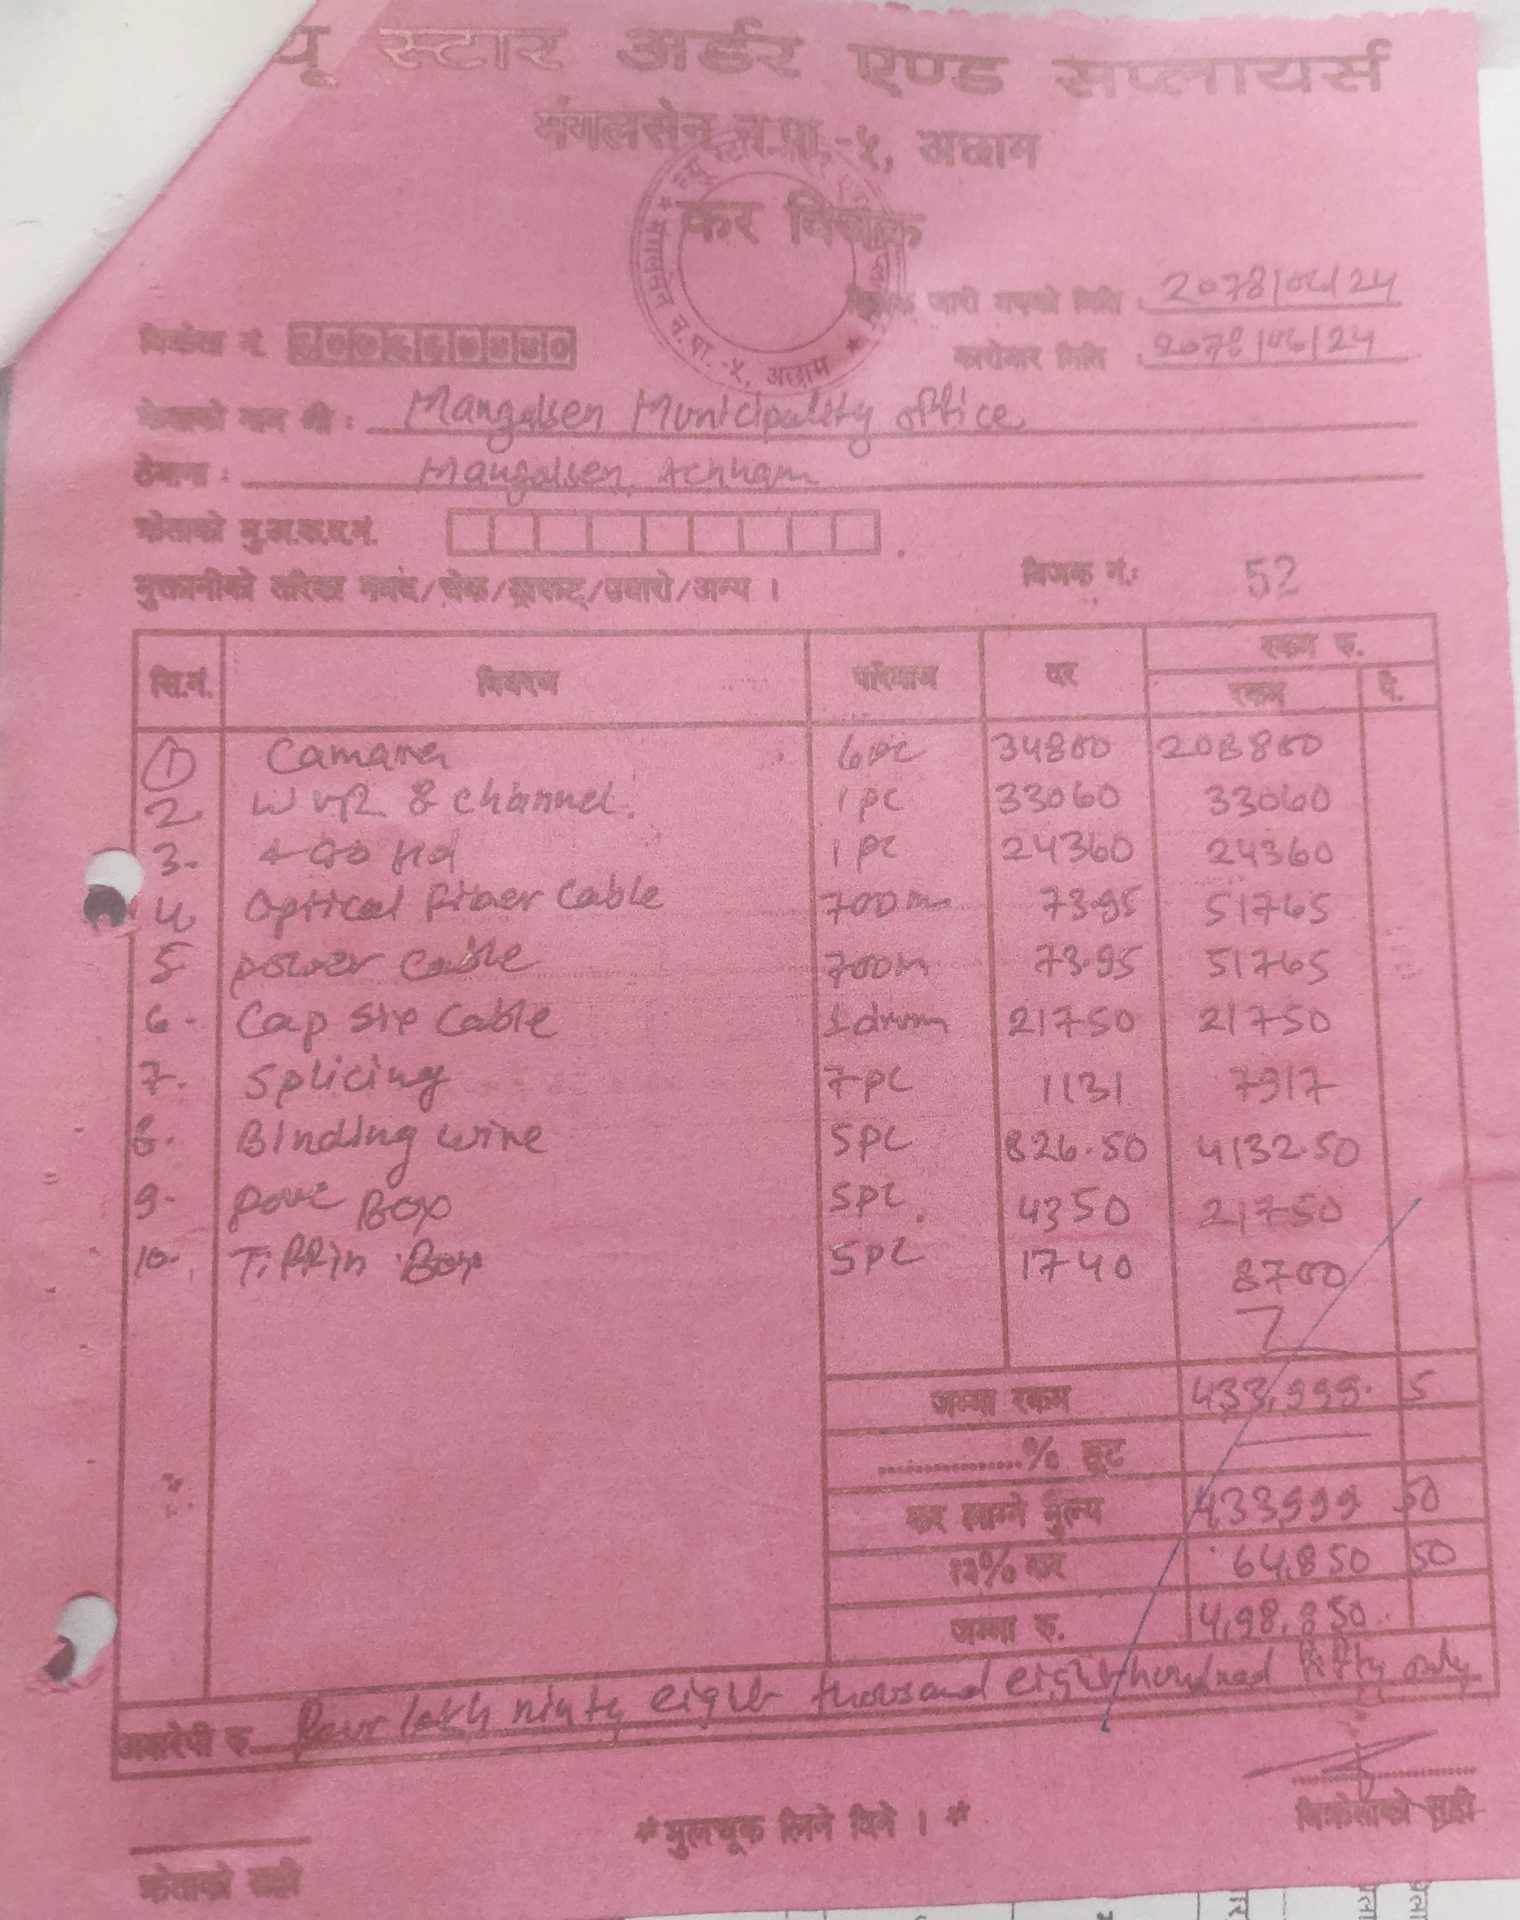 न्यू स्टार अर्डर एण्ड सप्लायर्स
मंगलसेन न.पा.-५, अछाम
कर विजक
विजक जारी भएको मिति : 2078/06/24
विक्रेता नं.
कारोबार मिति : 2078/06/24
क्रेताको नाम श्री : Mangalsen Municipality office
ठेगाना : Mangalsen, Achham
क्रेताको मू.अ.क.द.नं.
भुक्तानीको तरिका नगद/चेक/ड्राफ्ट/उधारो/अन्य ।
विजक नं.: 52
सि.नं. विवरण परिमाण दर रकम रु.
रकम पै.
1 Camara 6 pc 34800 208800
2. 8 channel. 1 pc 33060 33060
3. 1 pc 24360 24360
4 Optical fiber Cable 700m 73.95 51765
5 power cable 700m 73.95 51765
6. Cap Cable 1 drum 21750 21750
7. Splicing 7pc 1131 7917
8. Binding wire 5pc 826.50 4132.50
9. Box 5pc. 4350 21750
10. Tiffin Box 5pc 1740 8700
जम्मा रकम 433,999. 5
..............% छूट
कर लाग्ने मुल्य 4,33,999 50
१३% कर 64,850 50
जम्मा रु. 4,98,850
अक्षरेपी रु. four lakh ninty eight thousand eight hundred fifty only
*भुलचूक लिने दिने ।*
विक्रेताको सही
क्रेताको सही